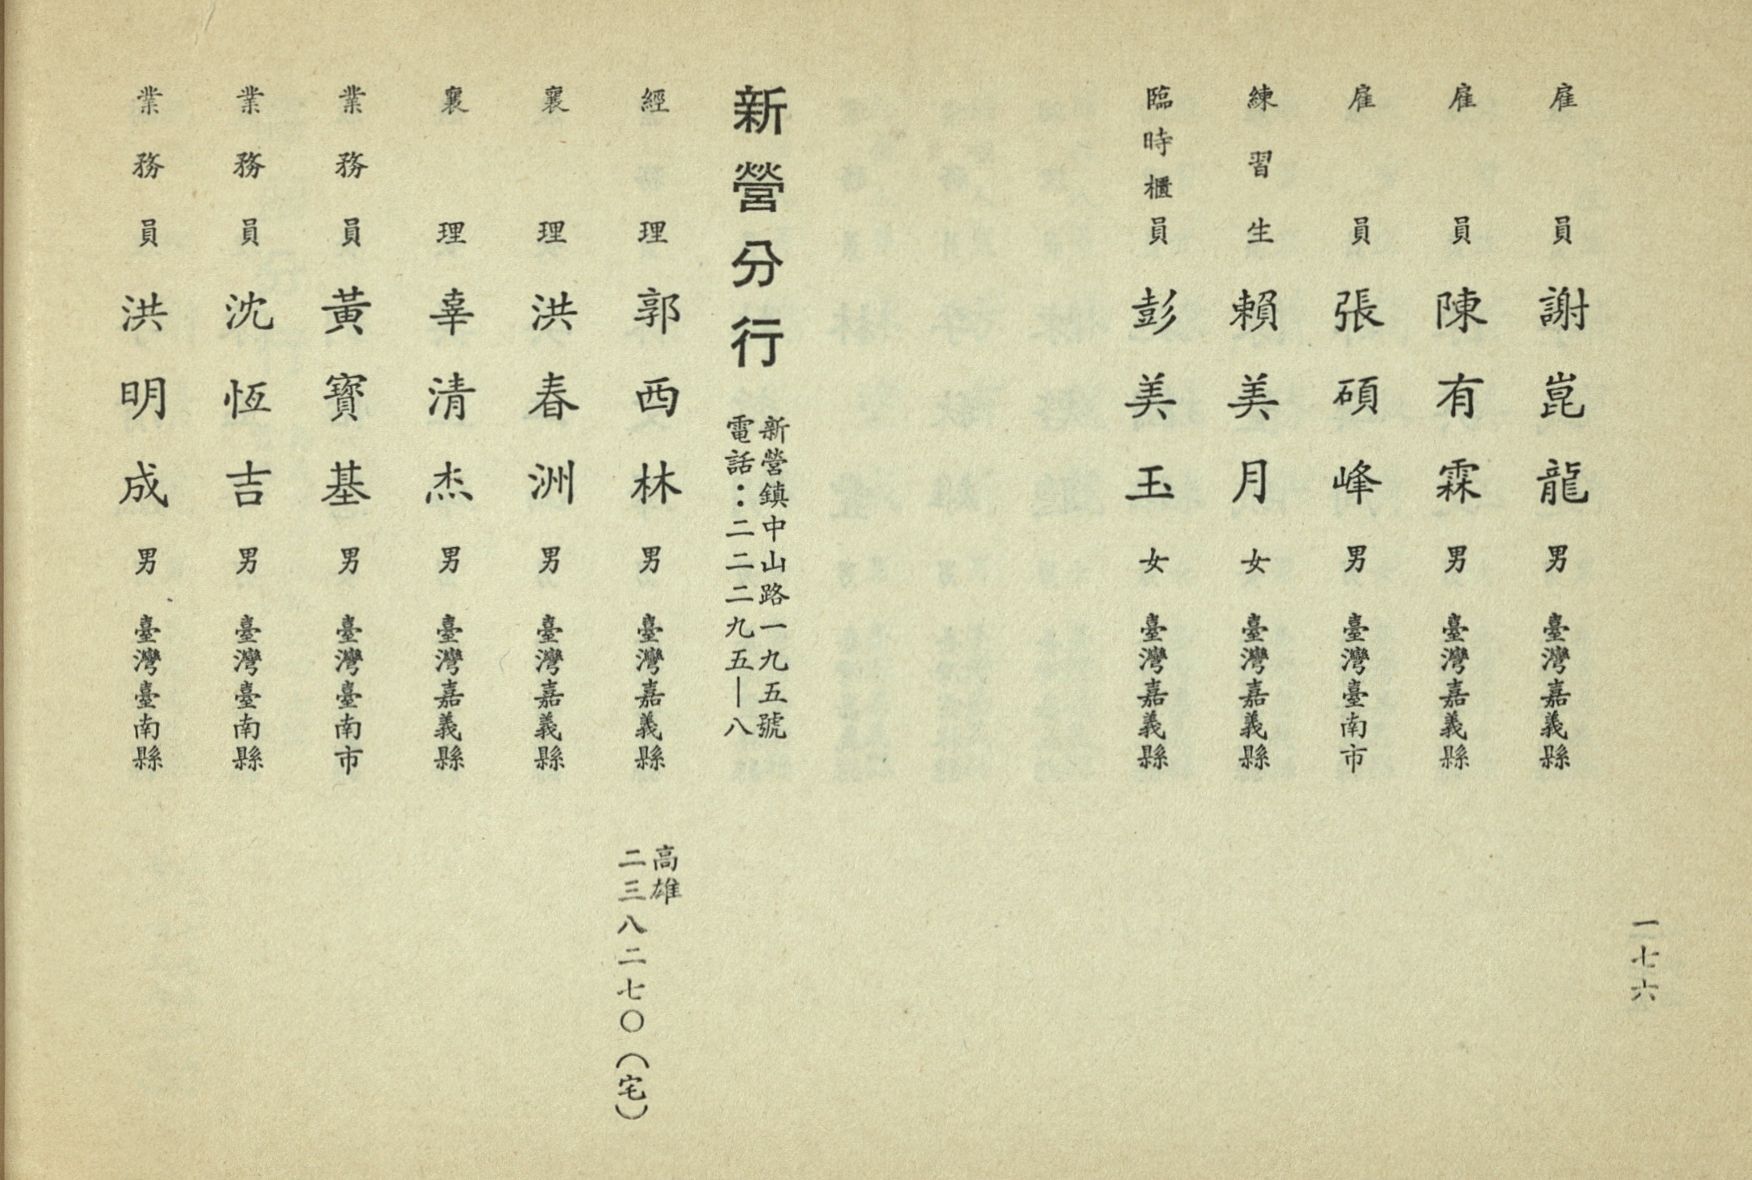 一七六
雇員 謝崑龍 男 臺灣嘉義縣
雇員 陳有霖 男 臺灣嘉義縣
雇員 張碩峰 男 臺灣臺南市
練習生 賴美月 女 臺灣嘉義縣
臨時櫃員 彭美玉 女 臺灣嘉義縣
新營分行
新營鎮中山路一九五號
電話：二二二九五—八
經理 郭西林 男 臺灣嘉義縣
高雄
二三八二七〇（宅）
襄理 洪春洲 男 臺灣嘉義縣
襄理 辜清杰 男 臺灣嘉義縣
業務員 黃寶基 男 臺灣臺南市
業務員 沈恆吉 男 臺灣臺南縣
業務員 洪明成 男 臺灣臺南縣